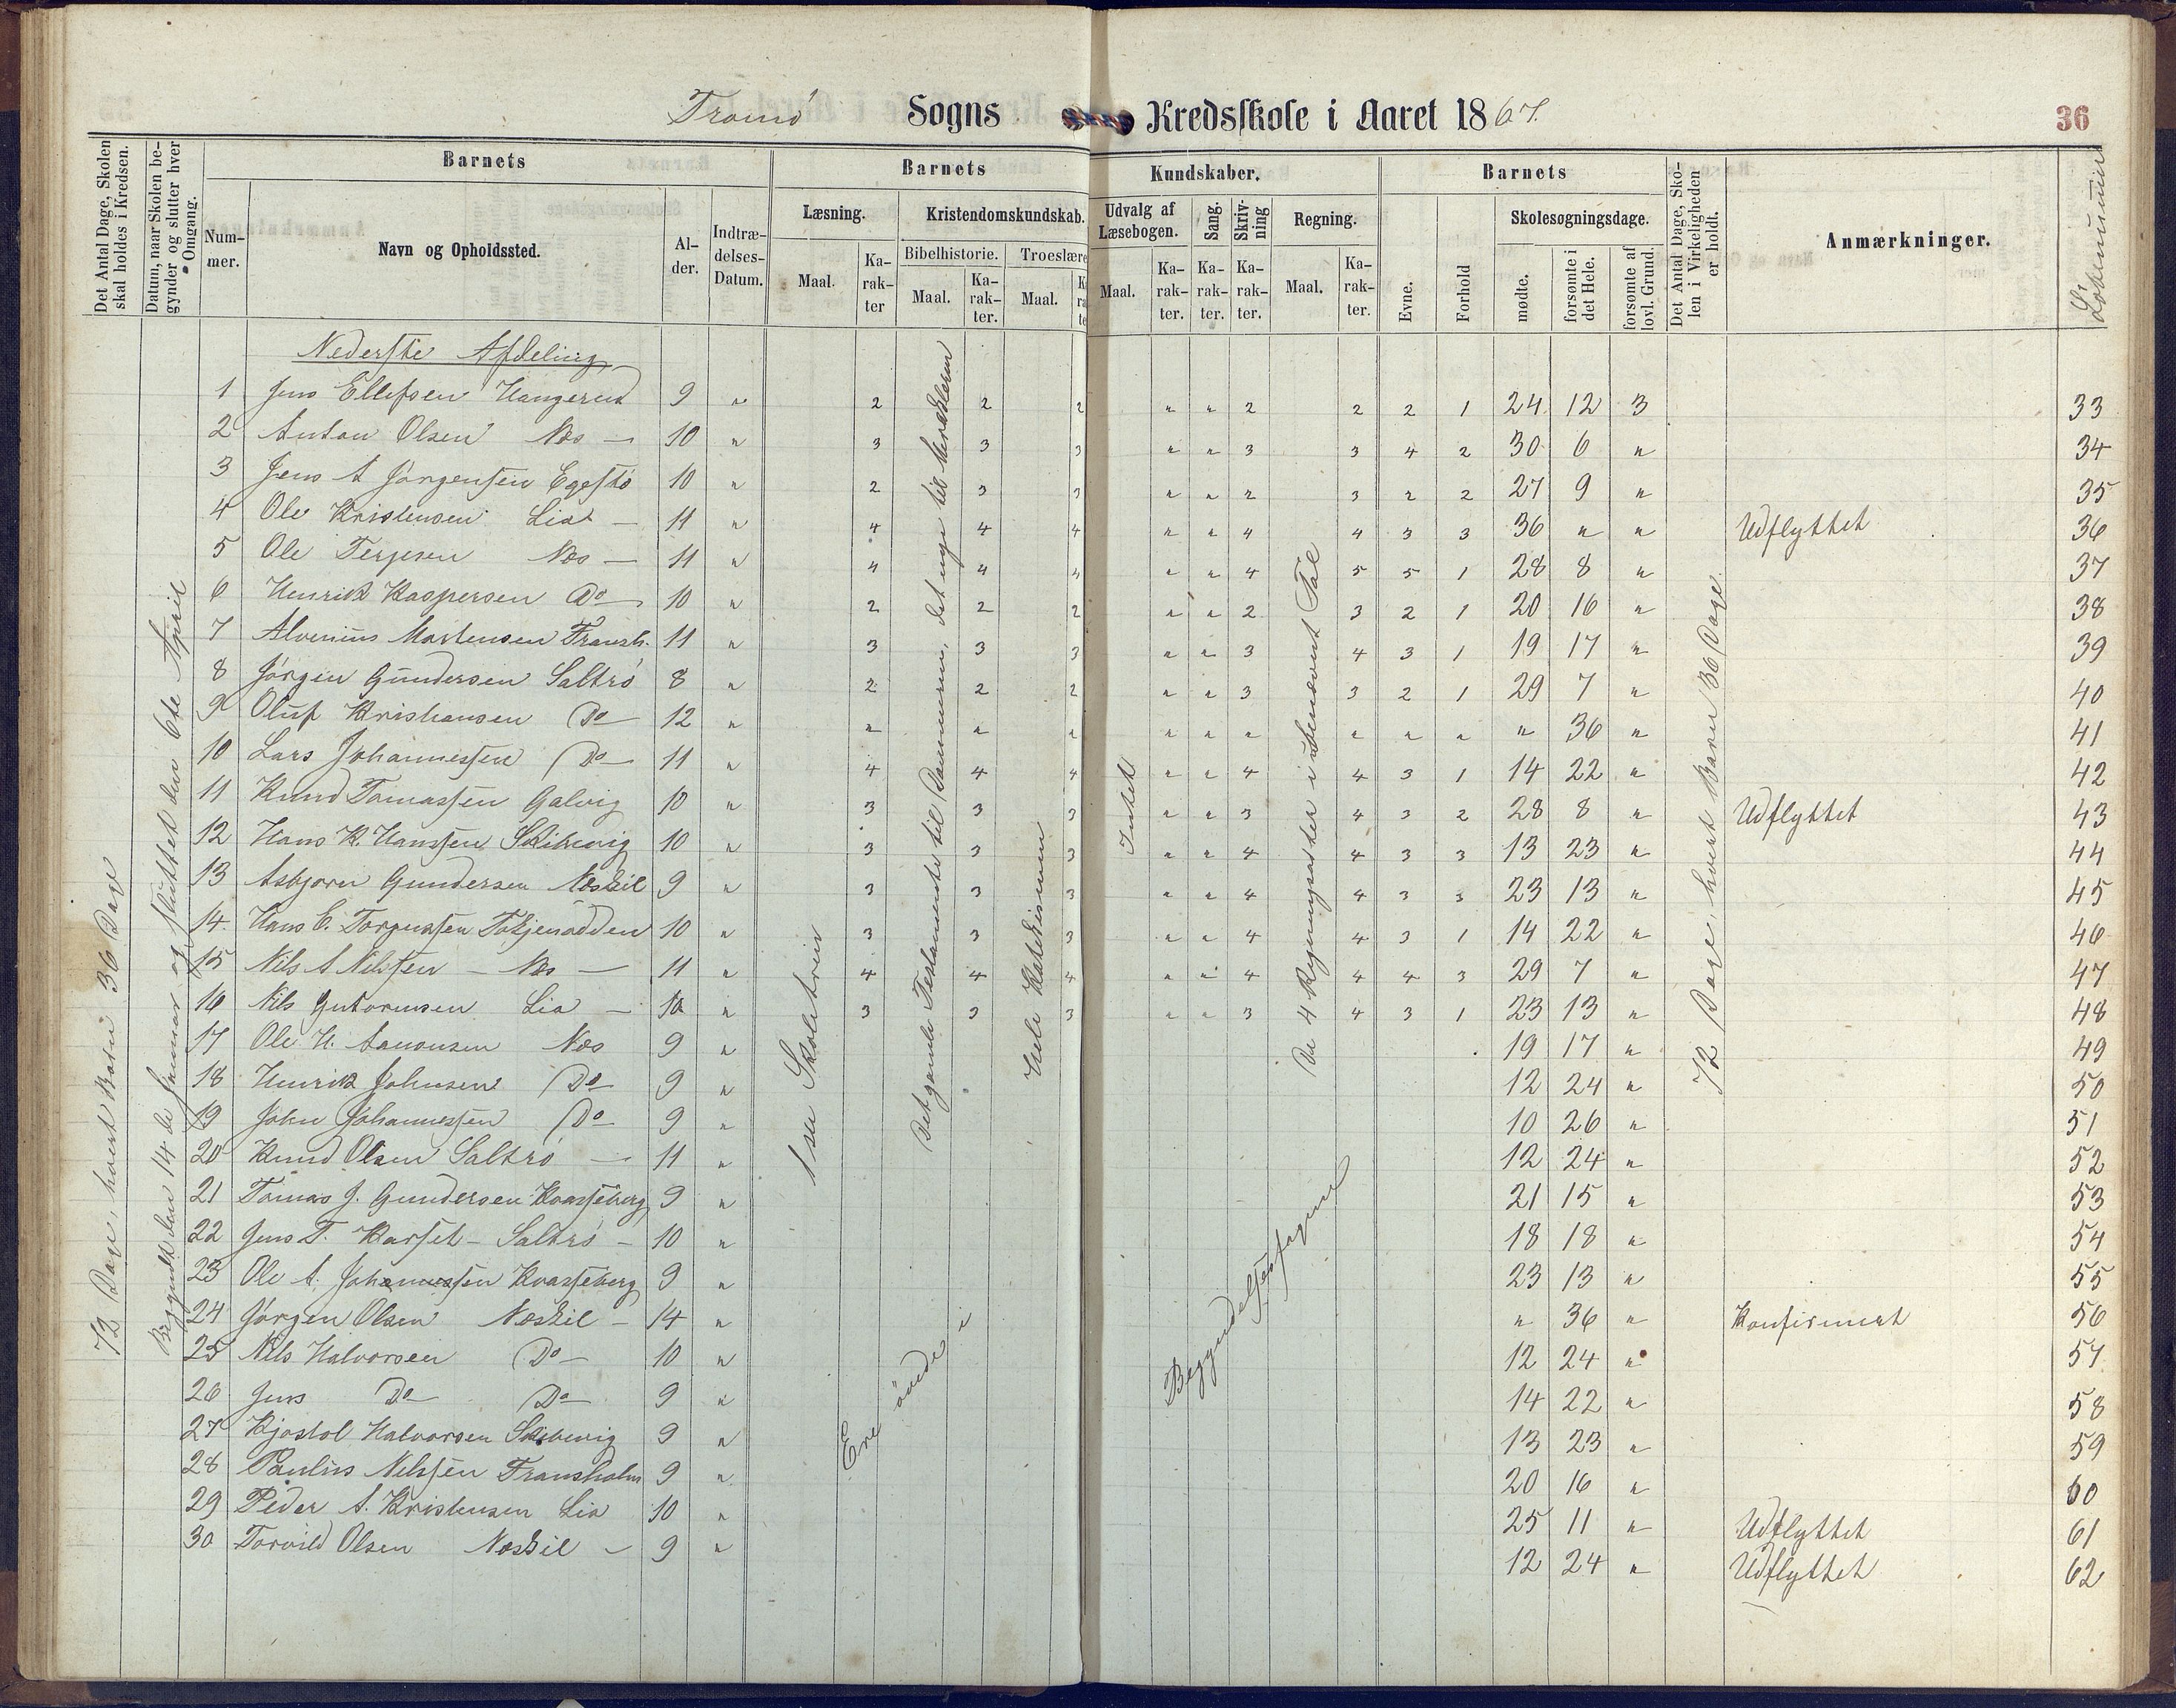 Tromø Sogns Kredsskole i Aaret 1867.
36
Det Antal Dage, Skolen skal holdes i Kredsen.
Datum, naar Skolen begynder og slutter hver Omgang.
Barnets
Nummer.
Navn og Opholdssted.
Alder.
Indtrædelses-Datum.
Barnets Kundskaber.
Læsning.
Maal.
Karakter
Kristendomskundskab.
Bibelhistorie.
Maal.
Karakter.
Troeslære
Maal.
Udvalg af Læsebogen.
Maal.
Karakter.
Sang.
Karakter.
Skrivning
Karakter.
Regning.
Maal.
Karakter.
Barnets
Evne.
Forhold
Skolesøgningsdage.
mødte.
forsømte i det Hele.
forsømte af lovl. Grund.
Det Antal Dage, Skolen i Virkeligheden er holdt.
Anmærkninger.
Løbenumer
72 Dage, hvert Barn 36 Dage
Begyndt den 14de Januar og sluttet den 6te April
1ste Skoletrin
Det gamle Testamente til Dommerne, det nye til
Hele Katekismen
Intet
De 4 Regningsarter i ubenævnt Tal
72 Dage, hvert Barn 36 Dage
Ere øvede i Begyndelsesfagene
Nederste Afdeling
1 Jens Ellefsen Hangerud 9 " 2 2 2 " " 2 2 2 1 24 12 3 33
2 Anton Olsen Næs — 10 " 3 3 3 " " 3 3 4 2 30 6 " 34
3 Jens A Jørgensen Egestø 10 " 2 3 3 " " 2 3 2 2 27 9 " 35
4 Ole Kristensen Lia — 11 " 4 4 4 " " 4 4 3 3 36 " " Udflyttet 36
5 Ole Terjesen Næs — 11 " 4 4 4 " " 4 5 5 1 28 8 " 37
6 Henrik Kaspersen Do — 10 " 2 2 2 " " 2 3 2 1 20 16 " 38
7 Alvenius Mortensen Fransh. 11 " 3 3 3 " " 3 4 3 1 19 17 " 39
8 Jørgen Gundersen Saltrø 8 " 2 2 2 " " 3 3 2 1 29 7 " 40
9 Oluf Kristiansen Do 12 " " " " " " " " " " " 36 " 41
10 Lars Johannessen Do 11 " 4 4 4 " " 4 4 3 1 14 22 " 42
11 Knud Tomassen Galvig 10 " 3 3 3 " " 3 4 3 2 28 8 " Udflyttet 43
12 Hans K. Hanssen Skibevig 10 " 3 3 3 " " 4 4 3 3 13 23 " 44
13 Asbjørn Gundersen Næskil 9 " 3 3 3 " " 4 4 3 3 23 13 " 45
14. Hans C. Torgersen 10 " 3 3 3 " " 4 4 3 1 14 22 " 46
15 Nils A Nilssen — Næs — 11 " 4 4 4 " " 4 4 4 3 29 7 " 47
16 Nils Gutormsen Lia — 10 " 3 3 3 " " 3 4 3 1 23 13 " 48
17 Ole H. Aanonsen Næs 9 " 19 17 " 49
18 Henrik Johnsen Do 9 " 12 24 " 50
19 John Johannessen Do 9 " 10 26 " 51
20 Knud Olsen Saltrø — 11 " 12 24 " 52
21 Tomas J. Gundersen Kvasseberg 9 " 21 15 " 53
22 Jens T. Karset — Saltrø — 10 " 18 18 " 54
23 Ole A. Johannessen Kvasseberg 9 " 23 13 " 55
24 Jørgen Olsen Næskil — 14 " " 36 " Konfirmert 56
25 Nils Halvorsen Do — 10 " 12 24 " 57
26 Jens Do Do 9 " 14 22 " 58
27 Kjøstol Halvorsen Skibevig 9 " 13 23 " 59
28 Paulus Nilssen Fransholm 9 " 20 16 " 60
29 Peder A. Kristensen Lia 10 " 25 11 " Udflyttet 61
30 Torvild Olsen Næskil — 9 " 12 24 " Udflyttet 62